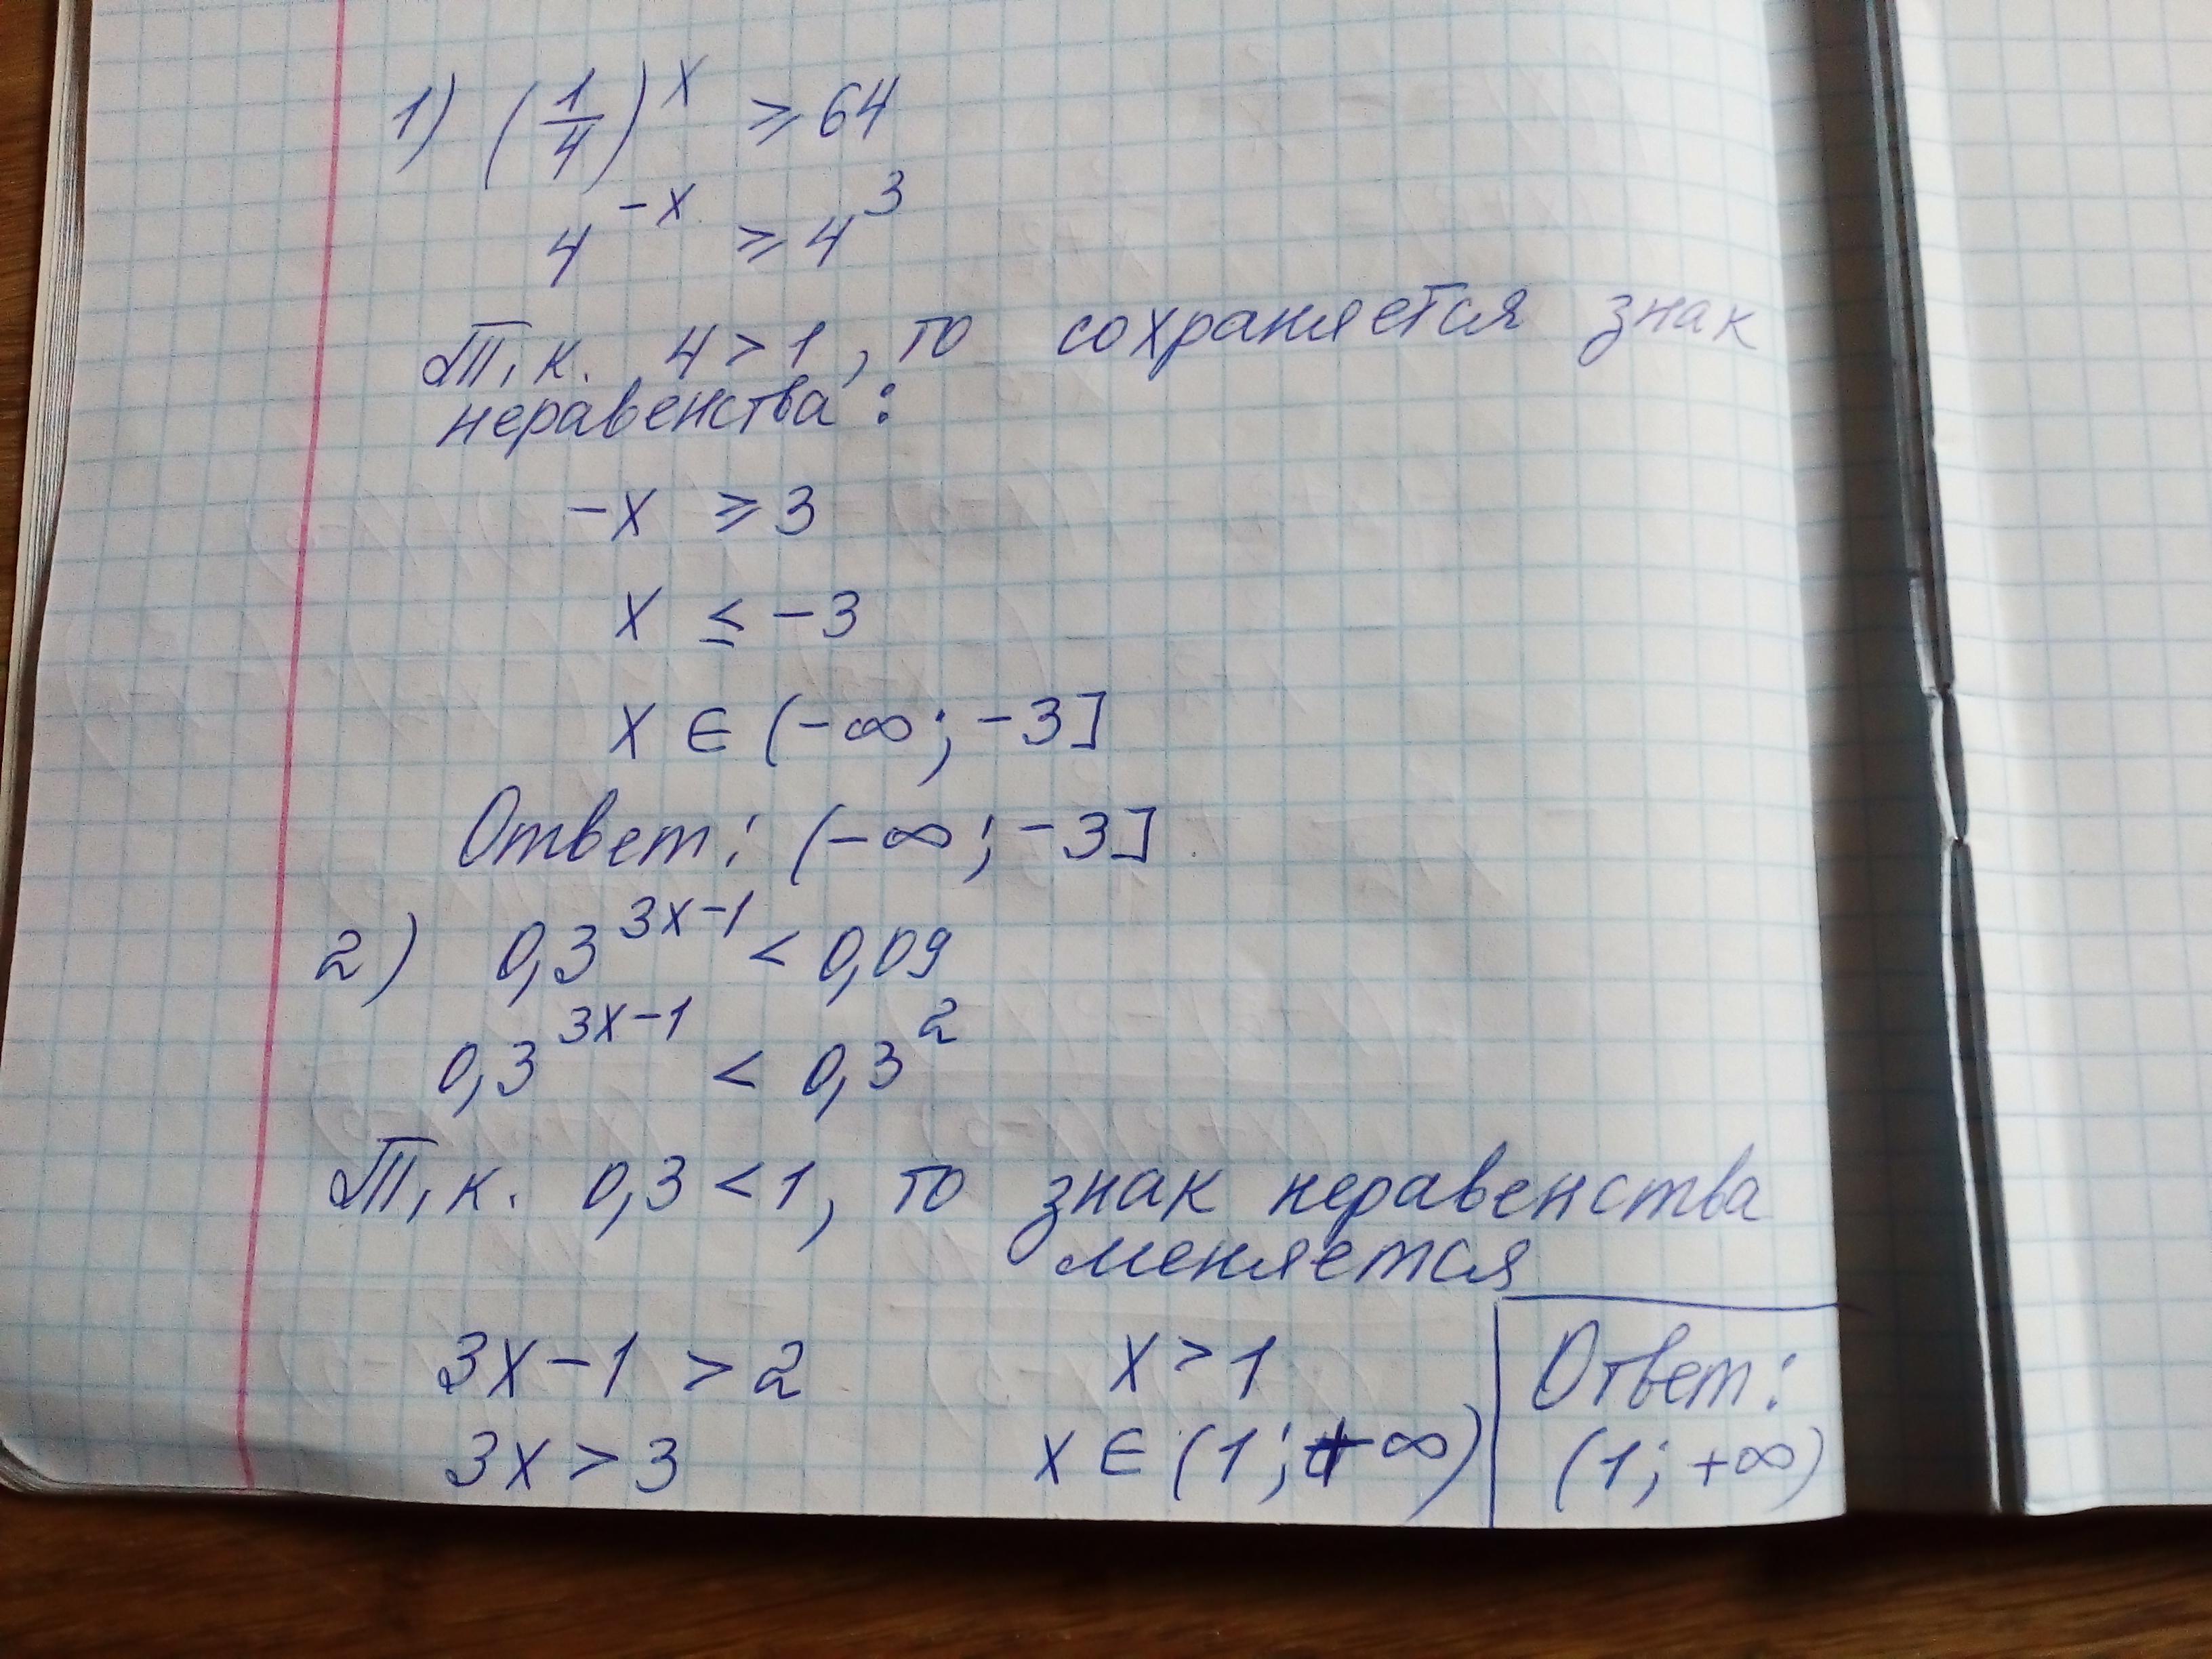 1) (1/4)^x ⩾ 64
4^-x ⩾ 4^3
Т.к. 4 > 1, то сохраняется знак
неравенства:
-x ⩾ 3
x ≤ -3
x ∈ (-∞; -3]
Ответ: (-∞; -3]
2) 0,3^3x-1 < 0,09
0,3^3x-1 < 0,3^2
Т.к. 0,3 < 1, то знак неравенства
меняется
3x-1 > 2
3x > 3
x > 1
x ∈ (1; +∞)
Ответ:
(1; +∞)